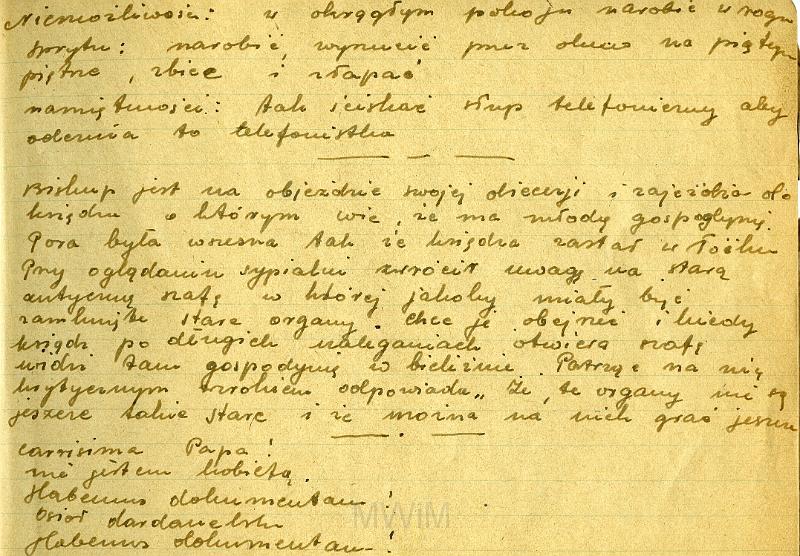 Niemożliwości: w okrągłym pokoju narobić w rogu
sprytu: narobić, wyrzucić przez okno na piątym
piętrze, zbiec i złapać
namiętności: tak ściskać słup telefoniczny aby
oderwia to telefonistka
Biskup jest na objeździe swojej diecezji i zajeżdża do
księdza o którym wie, że ma młodą gospodynię.
Pora była wczesna tak że księdza zastał w łóżku
Przy oglądaniu sypialni zwrócił uwagę na starą
antyczną szafę w której jakoby miały być
zamknięte stare organy. Chce je obejrzeć i kiedy
ksiądz po długich naleganiach otwiera szafę
widzi tam gospodynię w bieliźnie. Patrząc na nią
krytycznym wzrokiem odpowiada „Że te organy nie są
jeszcze takie stare i że można na nich grać jeszcze
carrisima Papa!
nie jestem kobietą.
Habemus dokumentam!
Osioł dardanelski
Habemus dokumentam!
MWiM